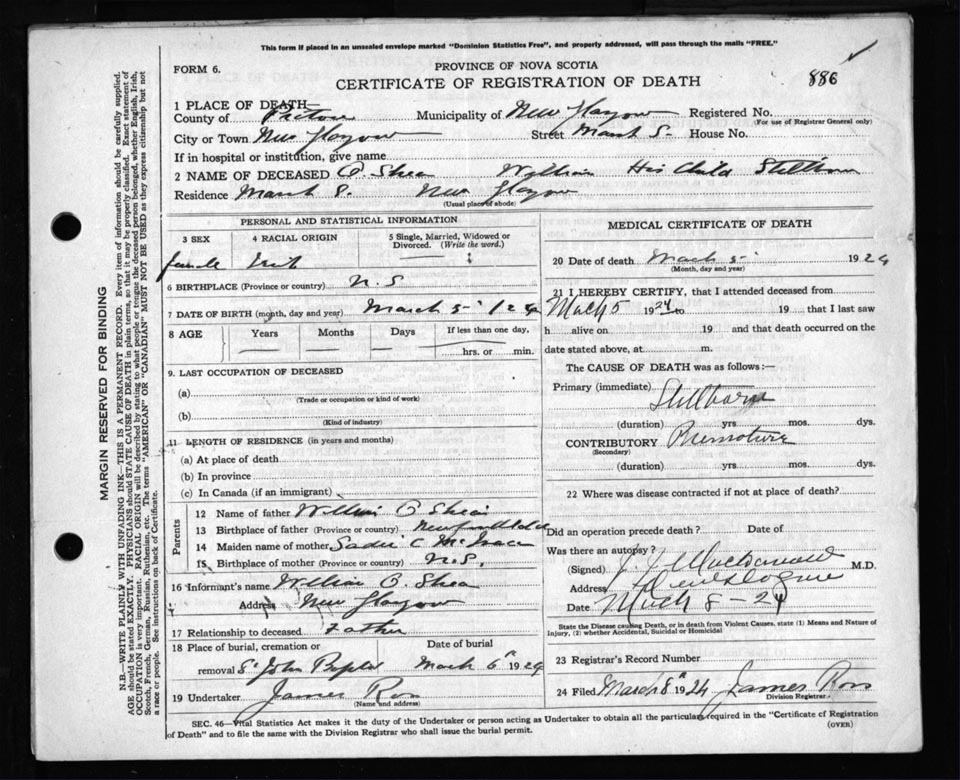 This form if placed in an unsealed envelope marked "Dominion Statistics Free", and properly addressed, will pass through the mails "FREE."
FORM 6.
PROVINCE OF NOVA SCOTIA
CERTIFICATE OF REGISTRATION OF DEATH
886
1 PLACE OF DEATH—
County of Pictou Municipality of New Glasgow Registered No.
(For use of Registrar General only)
City or Town New Glasgow Street March S. House No.
If in hospital or institution, give name
2 NAME OF DECEASED O Shea William His Child Stillborn
Residence March S. New Glasgow
(Usual place of abode)
PERSONAL AND STATISTICAL INFORMATION
3 SEX
4 RACIAL ORIGIN
5 Single, Married, Widowed or Divorced. (Write the word.)
female Irish
6 BIRTHPLACE (Province or country) N.S
7 DATE OF BIRTH (month, day and year) March 5
8 AGE Years Months Days If less than one day,
hrs. or min.
9. LAST OCCUPATION OF DECEASED
(a)
(Trade or occupation or kind of work)
(b)
(Kind of industry)
11 LENGTH OF RESIDENCE (in years and months)
(a) At place of death
(b) In province
(c) In Canada (if an immigrant)
Parents
12 Name of father William O Shea
13 Birthplace of father (Province or country) Newfoundland
14 Maiden name of mother Sadie C McIsaac
15 Birthplace of mother (Province or country) N.S.
16 Informant's name William O. Shea
Address New Glasgow
17 Relationship to deceased Father
18 Place of burial, cremation or removal St John Baptist
Date of burial March 6th 1924
19 Undertaker James Ross
(Name and address)
MEDICAL CERTIFICATE OF DEATH
20 Date of death March 5 1924
(Month, day and year)
21 I HEREBY CERTIFY, that I attended deceased from
Mach 5 1924 to 19 that I last saw
h alive on 19 and that death occurred on the
date stated above, at m.
The CAUSE OF DEATH was as follows:—
Primary (immediate) Stillborn
(duration) yrs. mos. dys.
CONTRIBUTORY Premature
(Secondary)
(duration) yrs. mos. dys.
22 Where was disease contracted if not at place of death?
Did an operation precede death? Date of
Was there an autopsy?
(Signed) J. J. Macdonald M.D.
Address New Glasgow
Date Mach 8-24
State the Disease causing Death, or in death from Violent Causes, state (1) Means and Nature of Injury, (2) whether Accidental, Suicidal or Homicidal
23 Registrar's Record Number
24 Filed March 8th 1924 James Ross
Division Registrar.
SEC. 46—Vital Statistics Act makes it the duty of the Undertaker or person acting as Undertaker to obtain all the particulars required in the "Certificate of Registration of Death" and to file the same with the Division Registrar who shall issue the burial permit.
(OVER)
MARGIN RESERVED FOR BINDING
N.B.—WRITE PLAINLY WITH UNFADING INK—THIS IS A PERMANENT RECORD. Every item of information should be carefully supplied.
AGE should be stated EXACTLY. PHYSICIANS should STATE CAUSE OF DEATH in plain terms, so that it may be properly classified. Exact statement of
OCCUPATION is very important. RACIAL ORIGIN will be described by stating to what people or tongue the deceased person belonged, whether English, Irish,
Scotch, French, German, Russian, Ruthenian, etc. The terms "AMERICAN" OR "CANADIAN" MUST NOT BE USED as they express citizenship but not
a race or people. See instructions on back of Certificate.